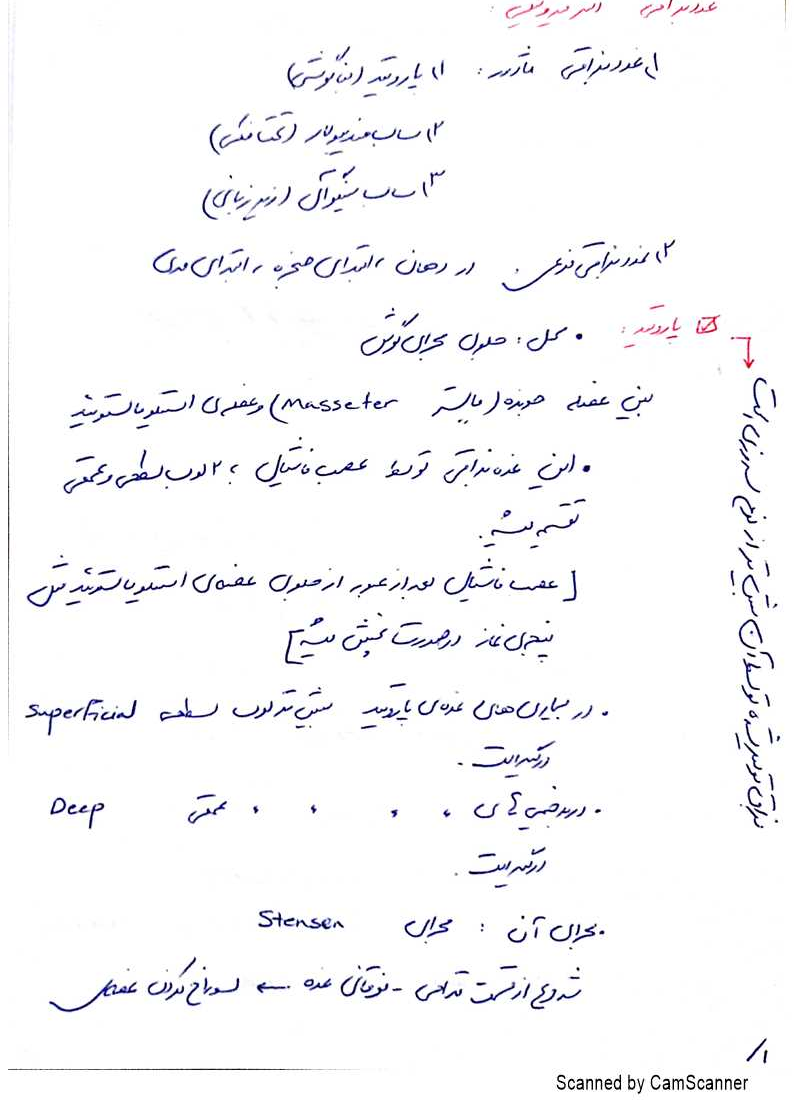 غدد بزاقی
۱) غدد بزاقی ماژور: ۱) پاروتید (بناگوشی)
۲) ساب مندیبولار (تحت فکی)
۳) ساب لینگوآل (زیر زبانی)
۲) غدد بزاقی فرعی: در دهان، ابتدای حنجره، ابتدای مری
☑ پاروتید: • محل: جلوی مجرای گوش
بین عضله جونده (ماستر Masseter) و عضله‌ی استرنوکلایدوماستوئید
• این غده بزاقی توسط عصب فاشیال به ۲ لوب سطحی و عمقی
تقسیم میشه.
[عصب فاشیال بعد از عبور از جلوی عضله‌ی مثل
پنجه‌ی غاز در صورت پخش میشه]
• در بیماری های غده‌ی پاروتید بیشتر لوب سطحی Superficial
درگیر است.
• در بدخیمی های " " " " عمقی Deep
درگیر است.
• مجرای آن: مجرای Stensen
شروع از قسمت قدامی - فوقانی غده ← سوراخ کردن عضله‌ی
بزاق تولید شده توسط آن بیشتر از نوع سروزی است
۱/
Scanned by CamScanner